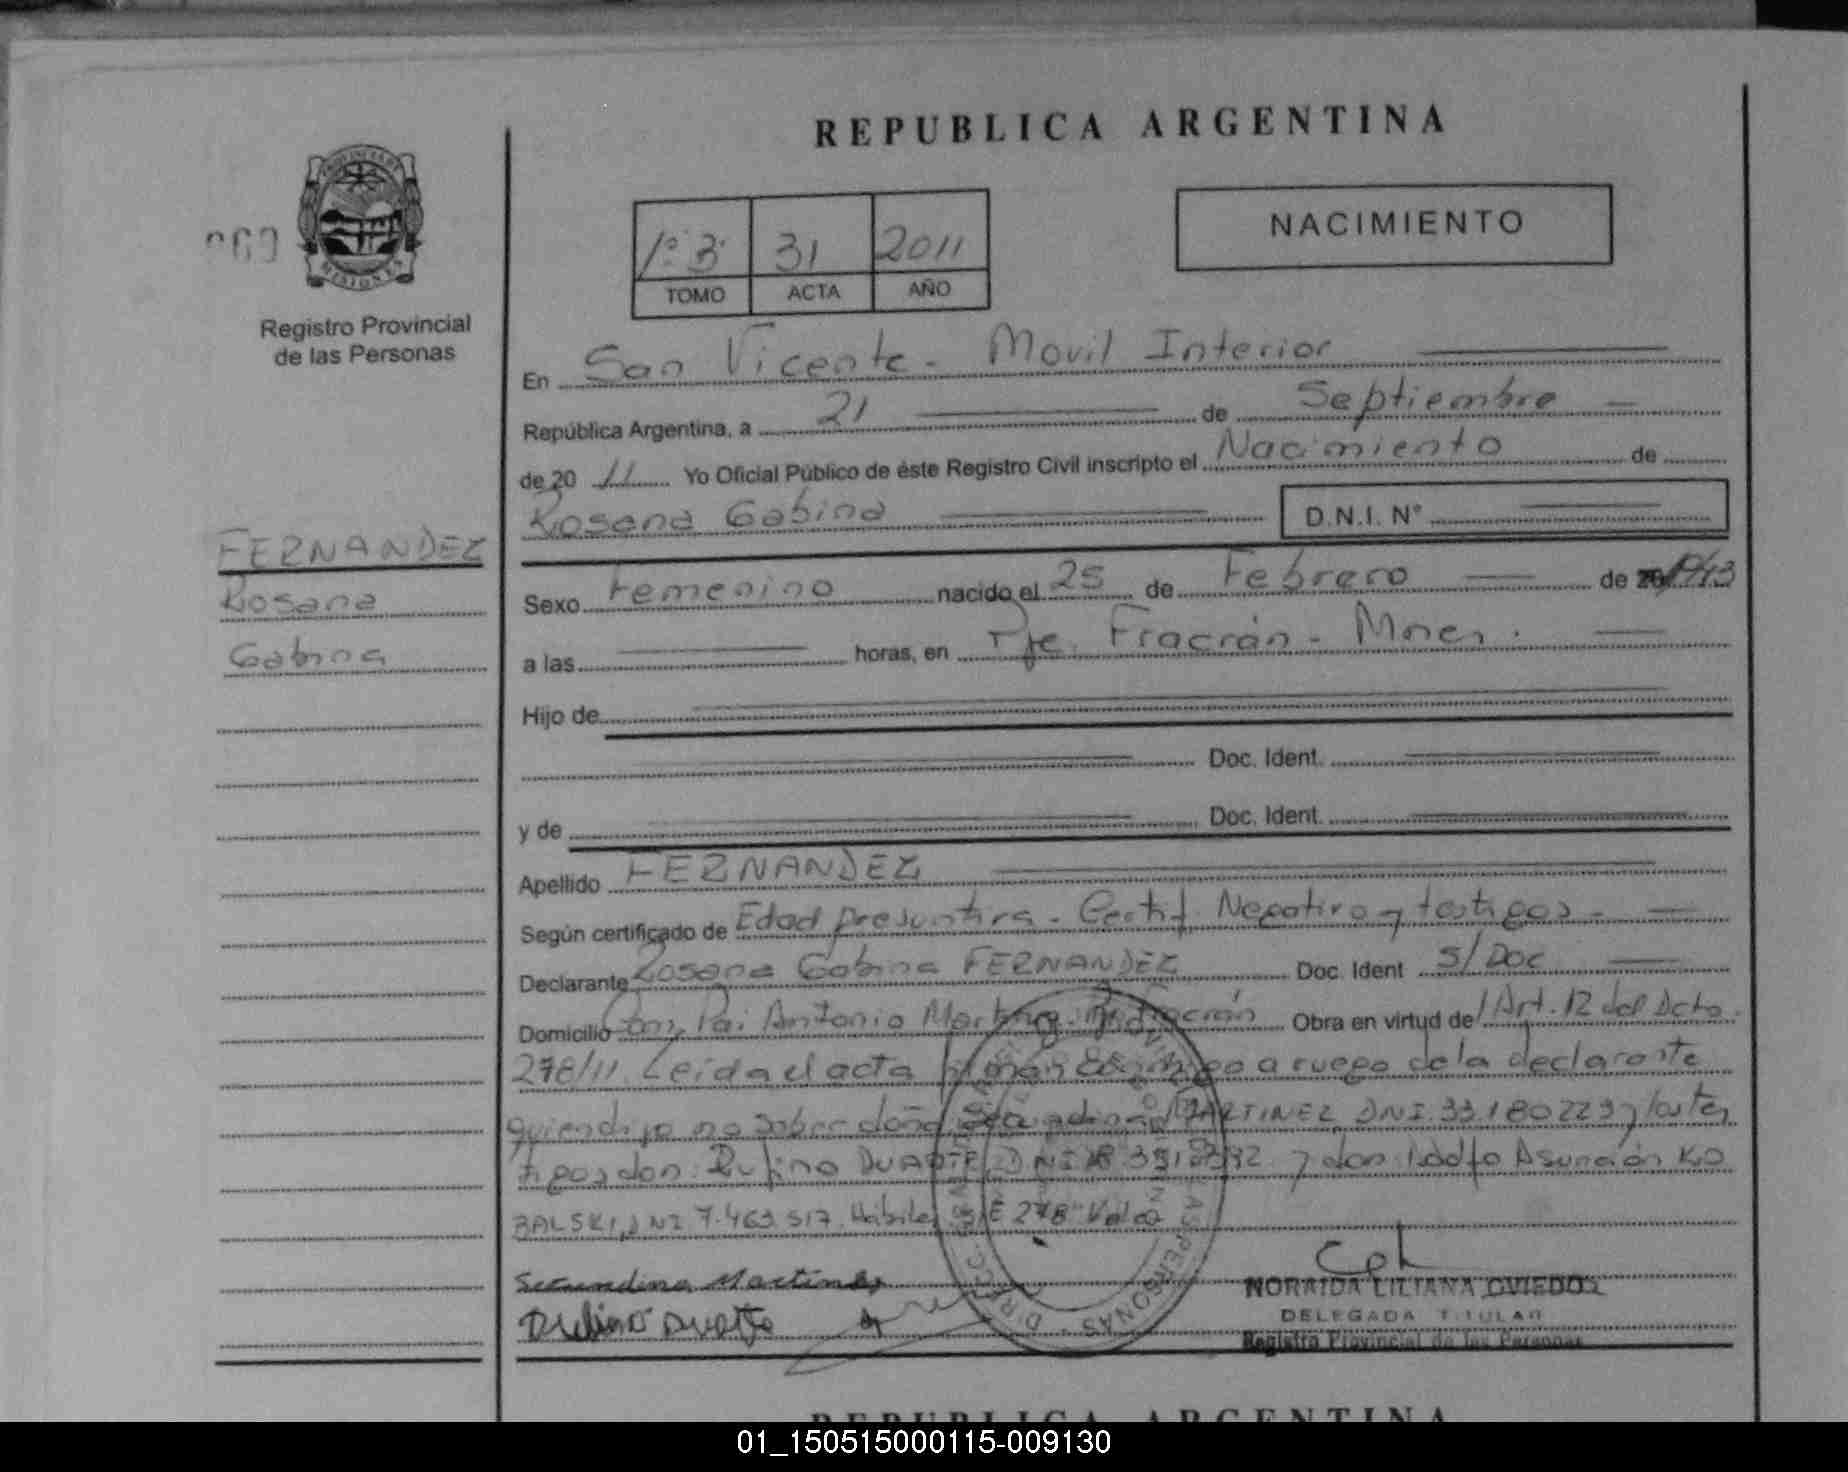 REPUBLICA ARGENTINA
MISIONES
Registro Provincial
de las Personas
1º 3 31 2011
TOMO ACTA AÑO
NACIMIENTO
En San Vicente - Movil Interior
República Argentina, a 21 de Septiembre
de 20 11 Yo Oficial Público de éste Registro Civil inscripto el Nacimiento de
Rosana Gabina D.N.I. Nº
FERNANDEZ
Rosana
Gabina
Sexo Femenino nacido el 25 de Febrero de
a las horas, en Pje. Fracrán - Mnes.
Hijo de
Doc. Ident.
y de Doc. Ident.
Apellido FERNANDEZ
Según certificado de Edad presuntiva - Certif. Negativo y testigos -
Declarante Rosana Gabina FERNANDEZ Doc. Ident S/Doc
Domicilio Pai Antonio Martinez Fracrán Obra en virtud del Art. 12 del Dcto.
278/11. Leida el acta firman conmigo a ruego de la declarante
quien dijo no saber doña Secundina MARTINEZ, DNI. 33.180223 y los tes
tigos don: Rufino DUARTE, DNI y don Asunción KO
BALSKI, DNI 7.463.517. Hábiles. S/E "278" Vale
Secundina Martinez
Duarte
NORAIDA LILIANA OVIEDO
DELEGADA TITULAR
Registro Provincial de las Personas
REPUBLICA ARGENTINA
01_150515000115-009130